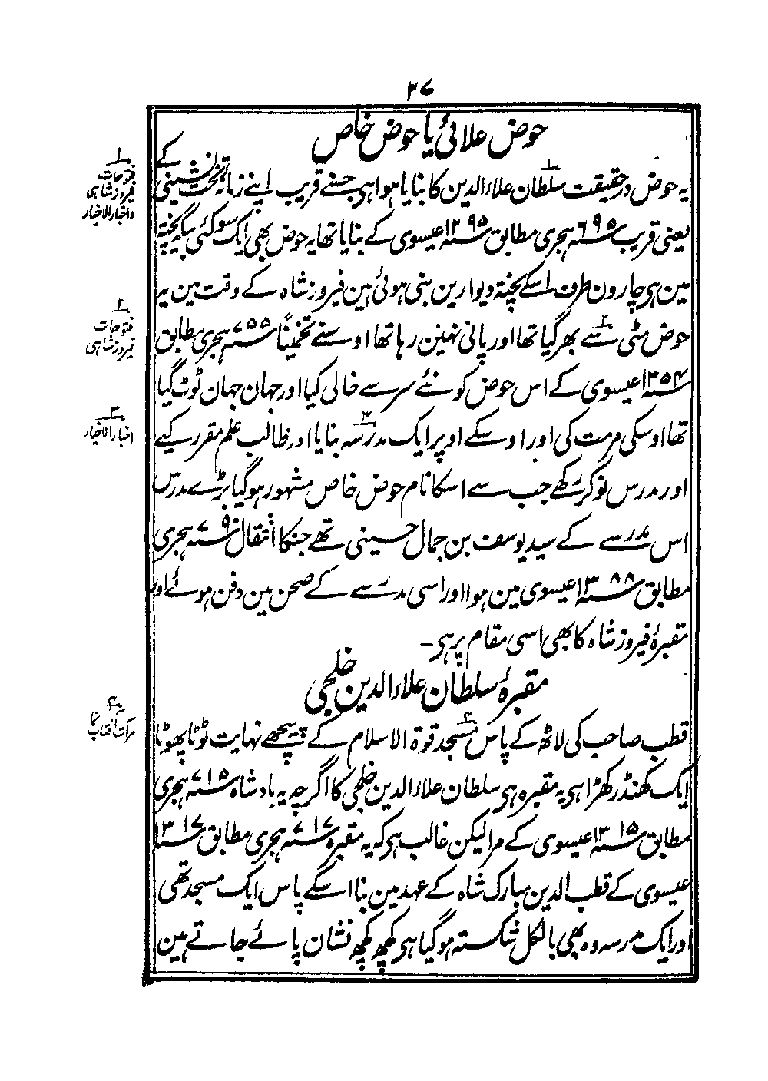 ۲۷
حوض علائی یا حوض خاص
یہ حوض درحقیقت سلطان علاء الدین کا بنایا ہوا ہی جسنے قریب اپنے زمانہ تخت نشینی کے
یعنی قریب ۶۹۵سنہ ہجری مطابق ۱۲۹۵سنہ عیسوی کے بنایا تھا یہ حوض بھی ایک سو کئی بیگہ پختہ
مین ہی چارون طرف اسکے پختہ دیوارین بنی ہوئی ہین فیروز شاہ کے وقت مین یہ
حوض مٹی سے بھر گیا تھا اور پانی نہین رہا تھا اوسنے تخمیناً ۷۵۵سنہ ہجری مطابق
۱۳۵۴سنہ عیسوی کے اس حوض کو نئے سر سے خالی کیا اور جہان جہان ٹوٹ گیا
تھا اوسکی مرمت کی اور اوسکے اوپر ایک مدرسہ بنایا اور طالب علم مقرر کیے
اور مدرس نوکر رکھے جب سے اسکا نام حوض خاص مشہور ہو گیا بڑے مدرس
اس مدرسے کے سید یوسف بن جمال حسینی تھے جنکا انتقال ۷۹۰سنہ ہجری
مطابق ۱۳۸۸سنہ عیسوی مین ہوا اور اسی مدرسے کے صحن مین دفن ہوئے اور
مقبرۂ فیروز شاہ کا بھی اسی مقام پر ہی۔
مقبرۂ سلطان علاء الدین خلجی
قطب صاحب کی لاٹھ کے پاس مسجد قوۃ الاسلام کے پیچھے نہایت ٹوٹا پھوٹا
ایک کھنڈر کھڑا ہی یہ مقبرہ ہی سلطان علاء الدین خلجی کا اگرچہ یہ بادشاہ ۷۱۵سنہ ہجری
مطابق ۱۳۱۵سنہ عیسوی کے مرا لیکن غالب ہی کہ یہ مقبرہ ۷۱۷سنہ ہجری مطابق ۱۳۱۷سنہ
عیسوی کے قطب الدین مبارک شاہ کے عہد مین بنا اسکے پاس ایک مسجد تھی
اور ایک مدرسہ وہ بھی بالکل شکستہ ہو گیا ہی کچھ کچھ نشان پائے جاتے ہین
۱
فتوحات
فیروز شاہی
و اخبار الاخیار
۲
فتوحات
فیروز شاہی
۳
اخبار الاخیار
۴
مرآت آفتاب نما